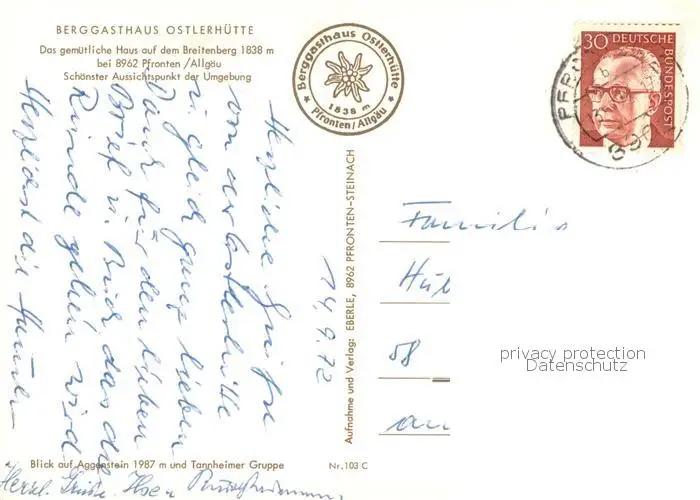 BERGGASTHAUS OSTLERHÜTTE
Das gemütliche Haus auf dem Breitenberg 1838 m
bei 8962 Pfronten /Allgäu
Schönster Aussichtspunkt der Umgebung
Berggasthaus Ostlerhütte
1838 m
Pfronten/Allgäu
30 DEUTSCHE
BUNDESPOST
14.9.72
Herzliche Grüße
von der Ostlerhütte
u. gleich ganz lieben
Dank für den lieben
Brief u. Buch das die
Runde gehen wird
Herzlichst die
Aufnahme und Verlag: EBERLE, 8962 PFRONTEN-STEINACH
Familie
Hub
58
an
privacy protection
Datenschutz
Blick auf Aggenstein 1987 m und Tannheimer Gruppe
Nr. 103 C
Herzl. Grüße